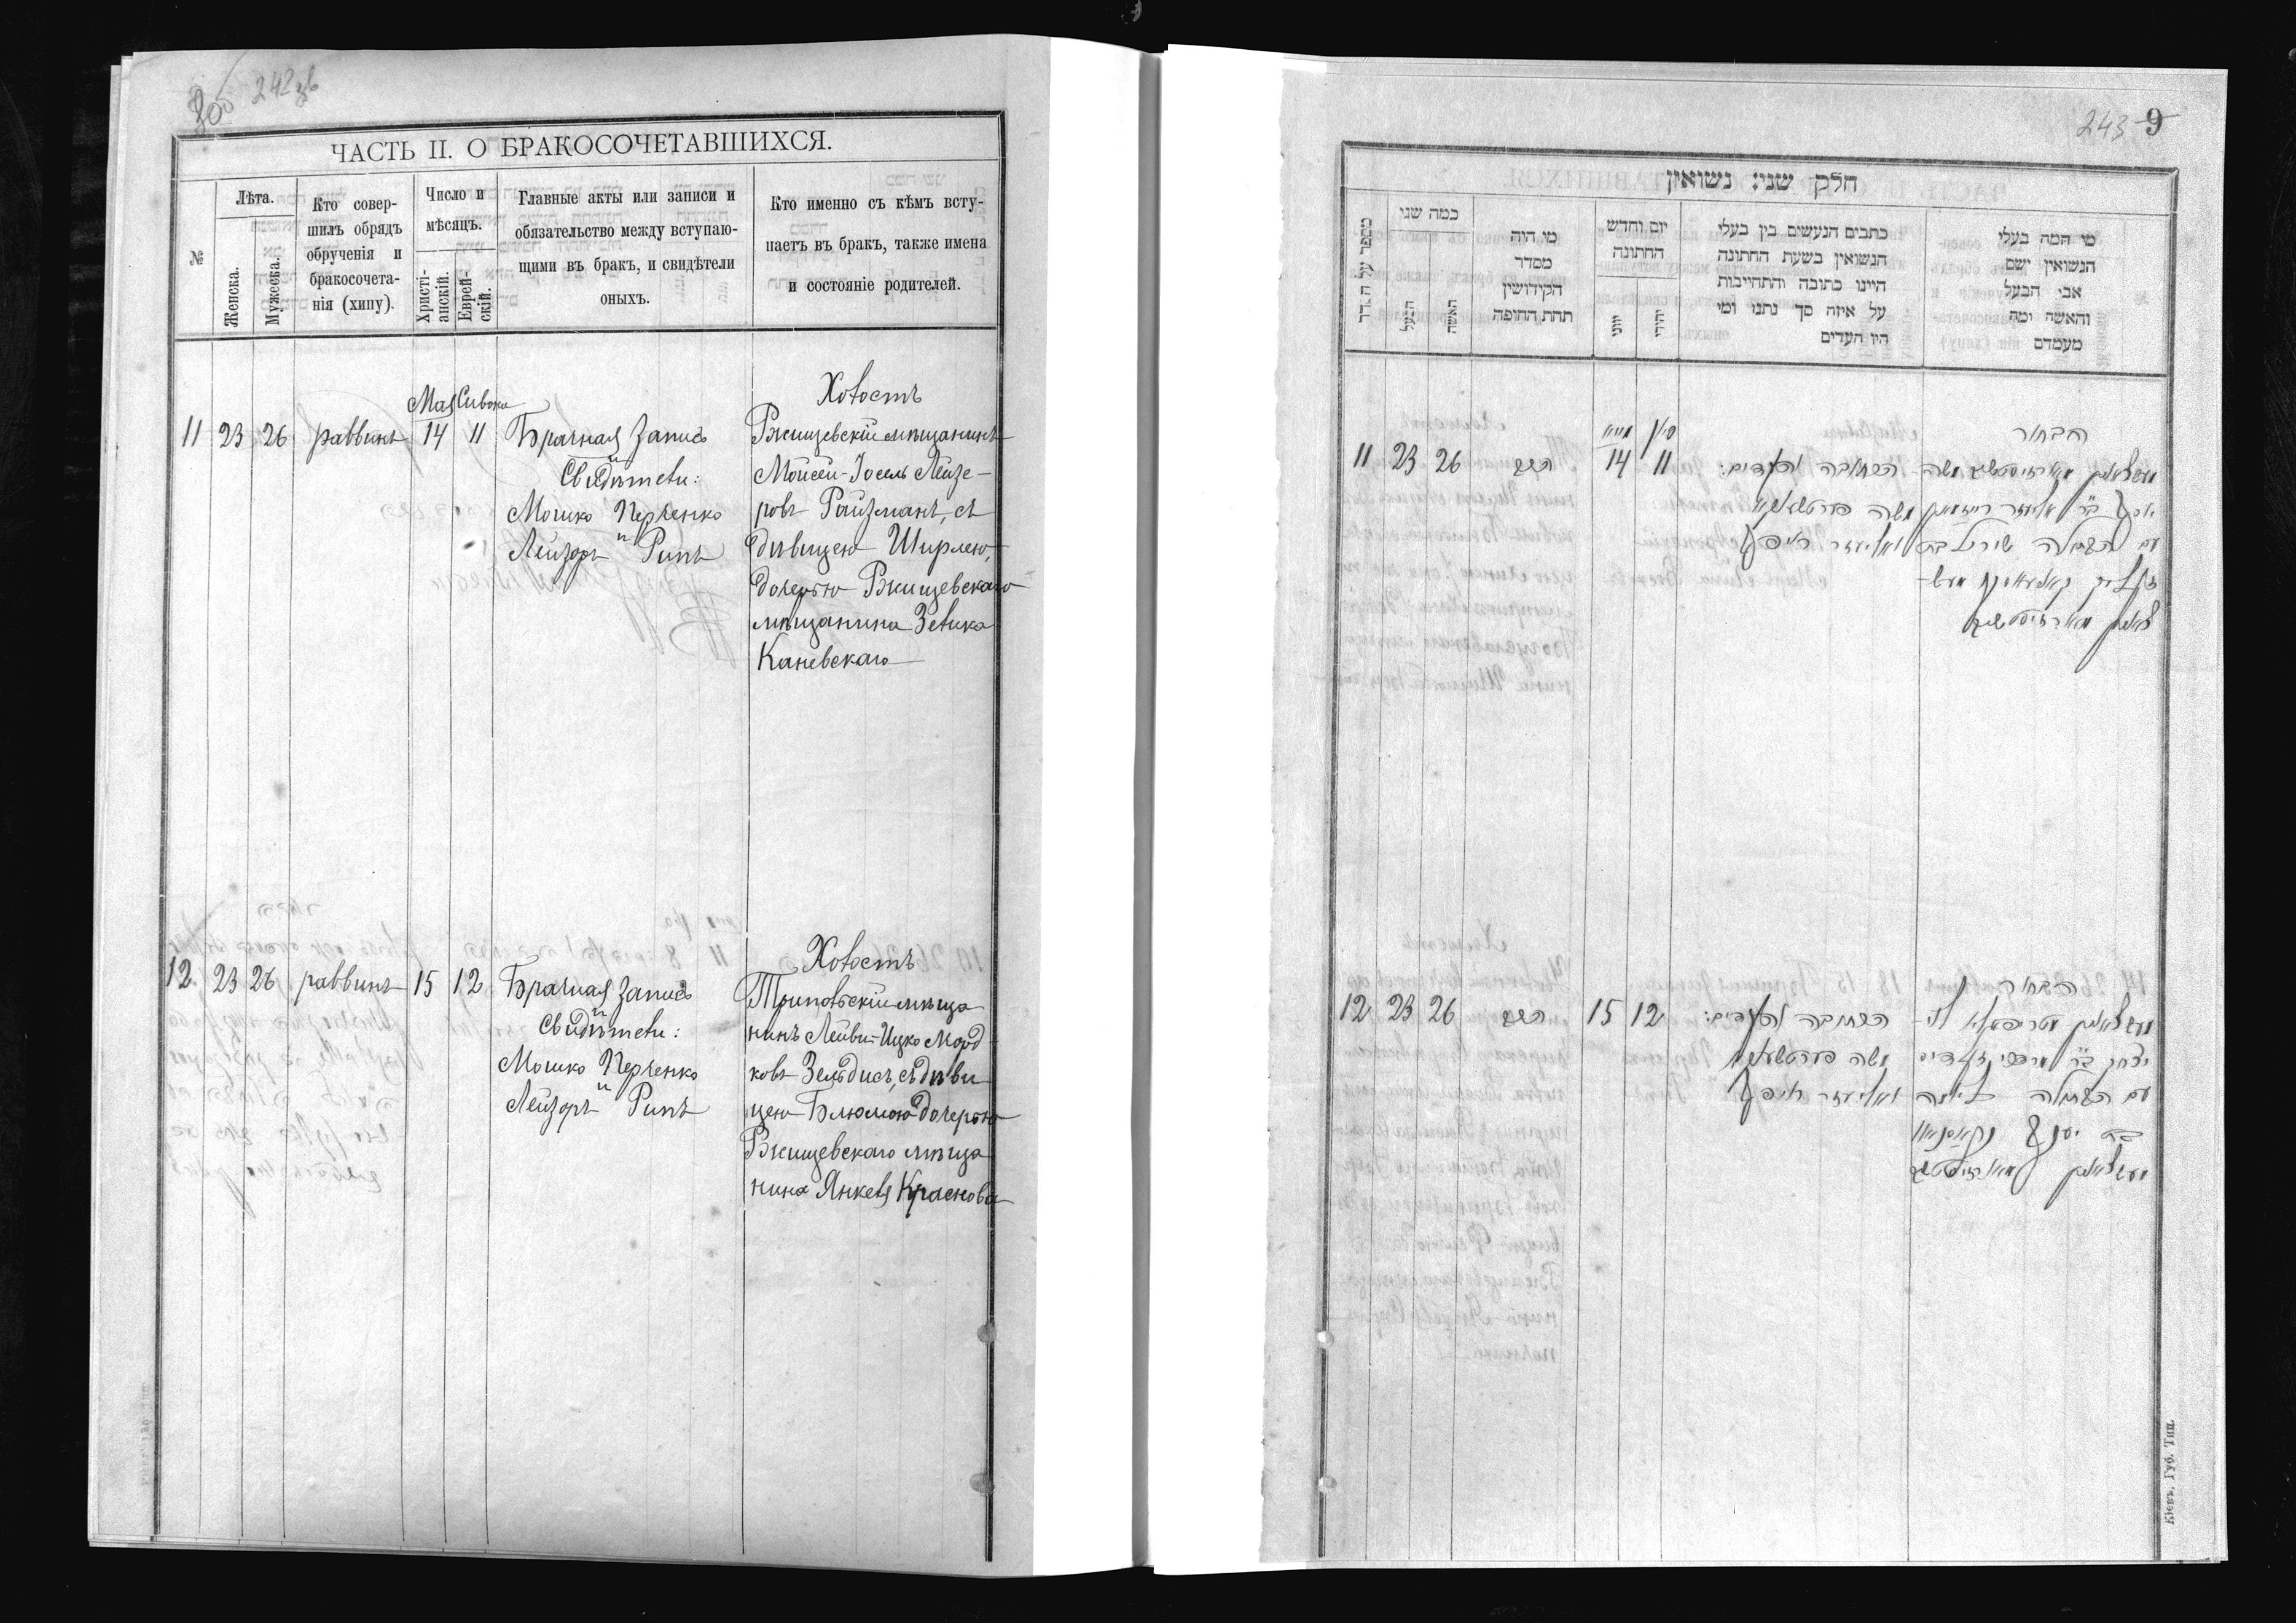 242 зв
ЧАСТЬ II. О БРАКОСОЧЕТАВШИХСЯ.
№
Лѣта.
Женска.
Мужеска.
Кто совер-
шилъ обрядъ
обрученія и
бракосочета-
нія (хипу).
Число и
мѣсяцъ.
Христі-
анскій.
Еврей-
скій.
Главные акты или записи и
обязательство между вступаю-
щими въ бракъ, и свидѣтели
оныхъ.
Кто именно съ кѣмъ всту-
паетъ въ бракъ, также имена
и состояніе родителей.
Мая Сивона
11 23 26 раввинъ 14 11
Брачная запись
и
Свидѣтели:
Мошко Перченко
и
Лейзоръ Рипъ
Холостъ
Ржищевскій мѣщанинъ
Мойсей-Іосель Лейзе-
ровъ Райзманъ, съ
дѣвицею Ширлею,
дочерью Ржищевскаго
мѣщанина Зелика
Каневскаго
12 23 26 раввинъ 15 12
Брачная запись
и
Свидѣтели:
Мошко Перченко
и
Лейзоръ Рипъ
Холостъ
Трипольскій мѣща
нинъ Лейви-Ицко Морд
ковъ Зельдисъ, съ дѣви
цею Блюмою дочерью
Ржищевскаго мѣща
нина Янкеля Краснова
243 9
חלק שני: נשואין
מספר על הסדר
כמה שני
הבעל
האשה
מי היה
מסדר
הקידושין
תחת החופה
יום וחדש
החתונה
יווני
יהודי
כתבים הנעשים בין בעלי
הנשואין בשעת החתונה
היינו כתובה והתחייבות
על איזה סך נתנו ומי
היו העדים
מי המה בעלי
הנשואין ושם
אבי הבעל
והאשה ומה
מעמדם
מייא סיון
11 23 26 הרב 14 11
הכתובה והעדים:
משה פערטשענקא
ואליעזר ריפ
הבחור
יאסף ב״ר אליעזר רייזמאן
עם הבתולה שירל בת
12 23 26 הרב 15 12
הכתובה והעדים:
משה פערטשענקא
ואליעזר ריפ
הבחור
יצחק ב״ר מרדכי זעלדיס
עם הבתולה בלומה
Кіевъ, Губ. Тип.